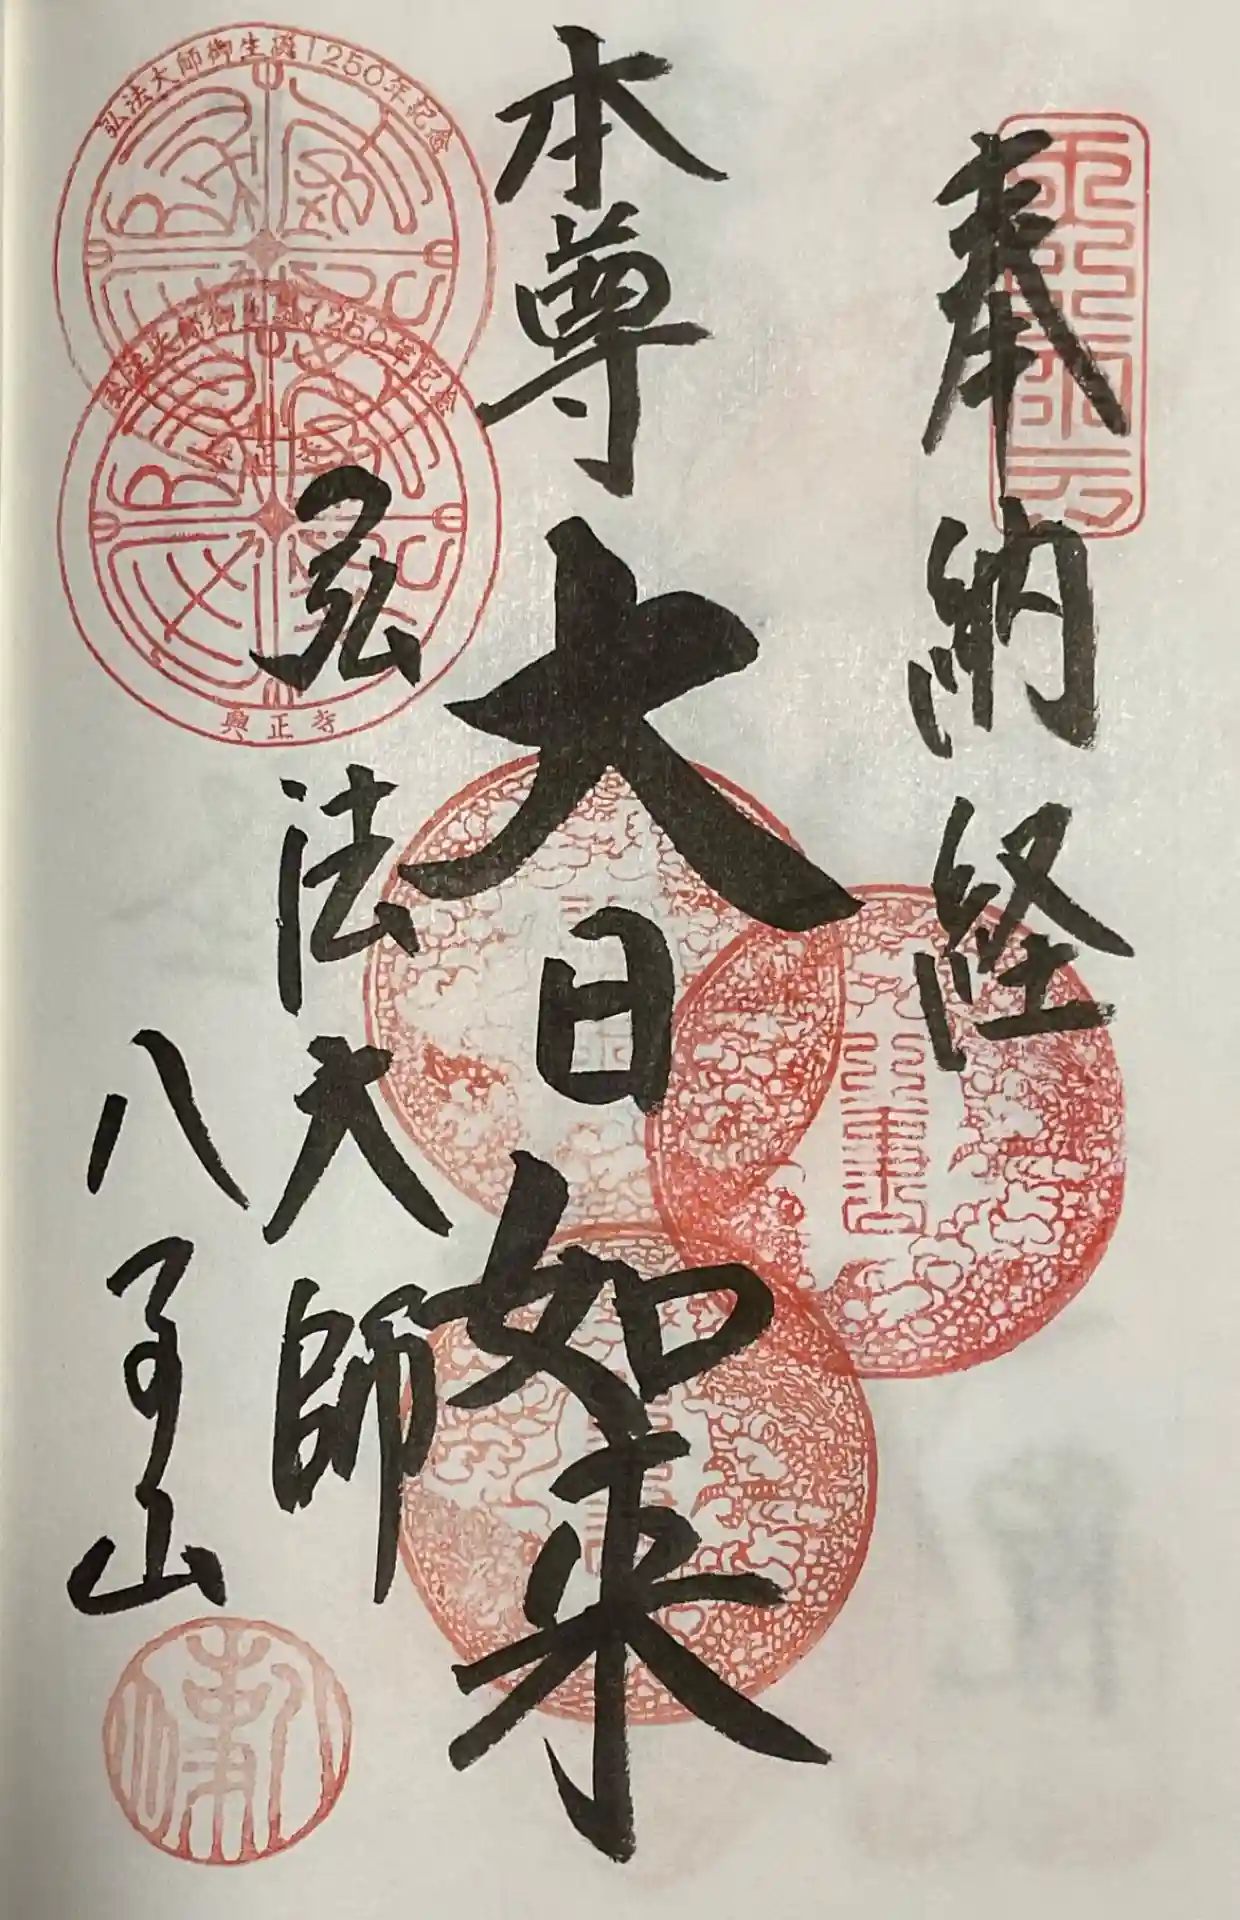 奉納経
本尊大日如来
弘法大師
八事山
弘法大師御生誕1250年記念
弘法大師御生誕1250年記念
興正寺